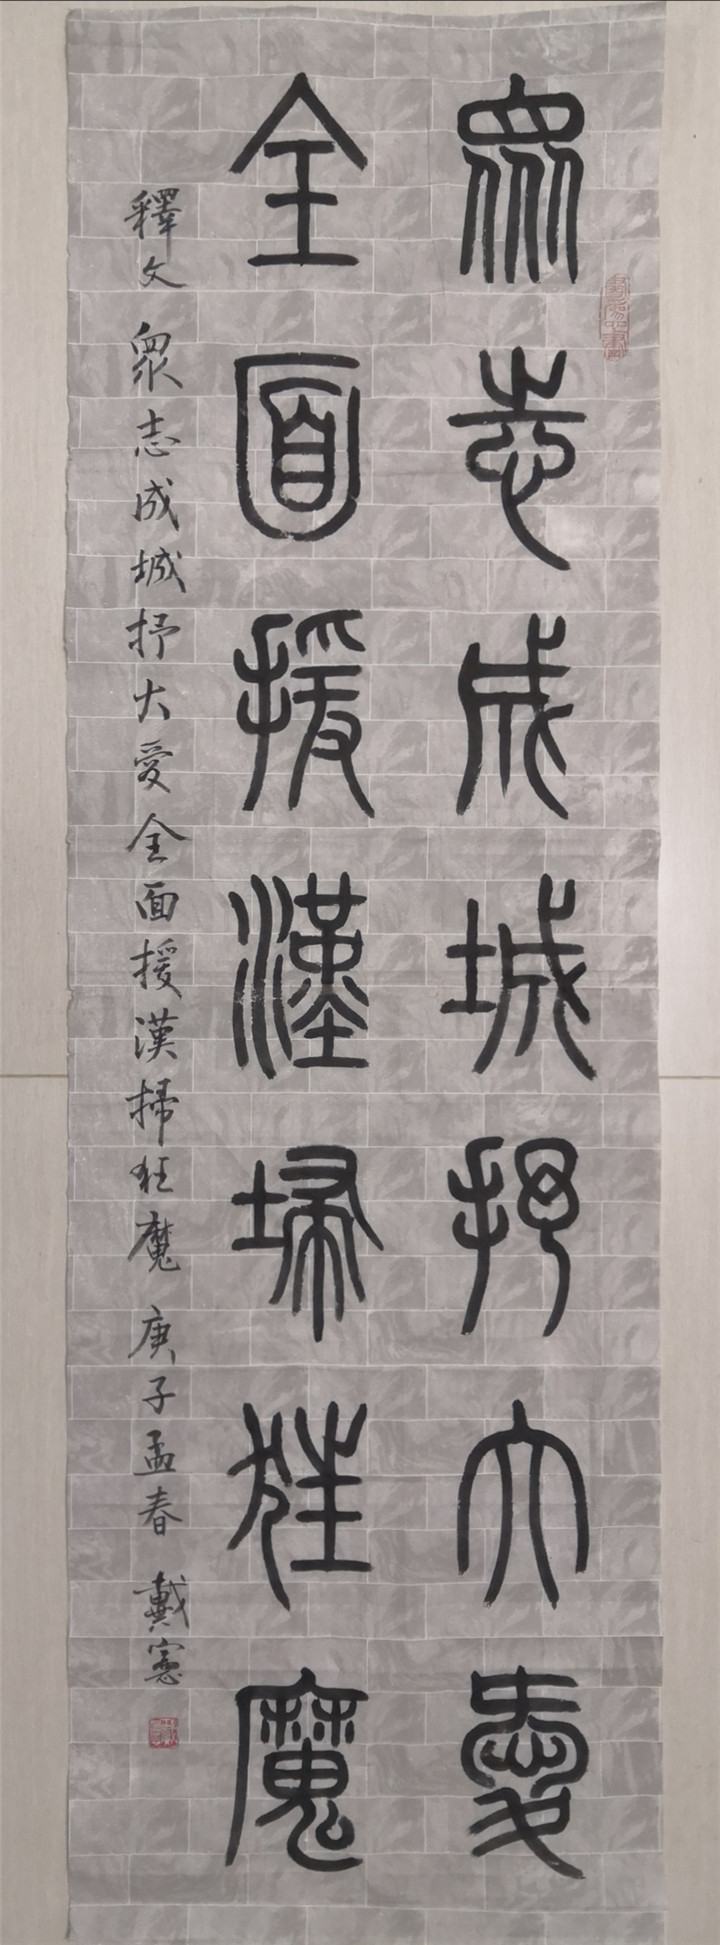 眾志成城抒大愛
全面援漢掃狂魔
釋文 眾志成城抒大愛全面援漢掃狂魔 庚子孟春 戴憲